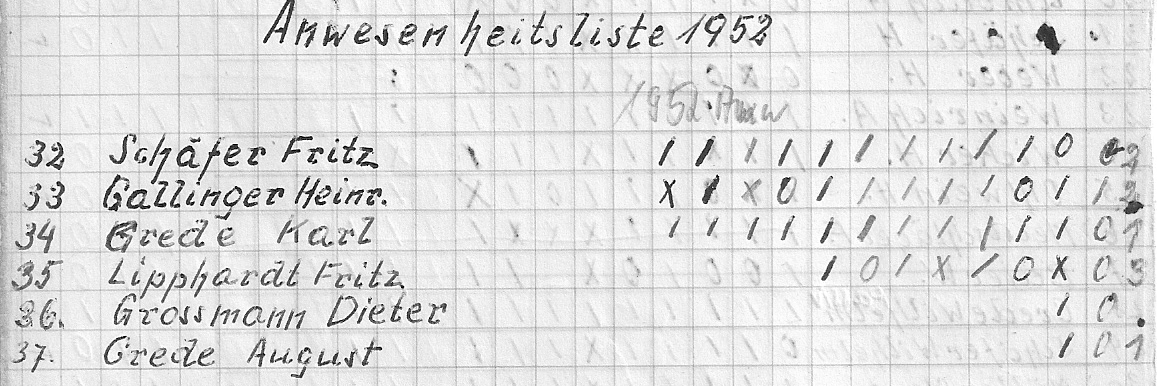 Anwesenheitsliste 1952
1952
32 Schäfer Fritz / / / / / / / / / / 0 0 2
33 Gallinger Heinr. X / X 0 / / / / / 0 / / 2
34 Grede Karl / / / / / / / / / / / 0 1
35 Lipphardt Fritz / 0 / X / 0 X 0 3
36. Grossmann Dieter / 0
37. Grede August / 0 1